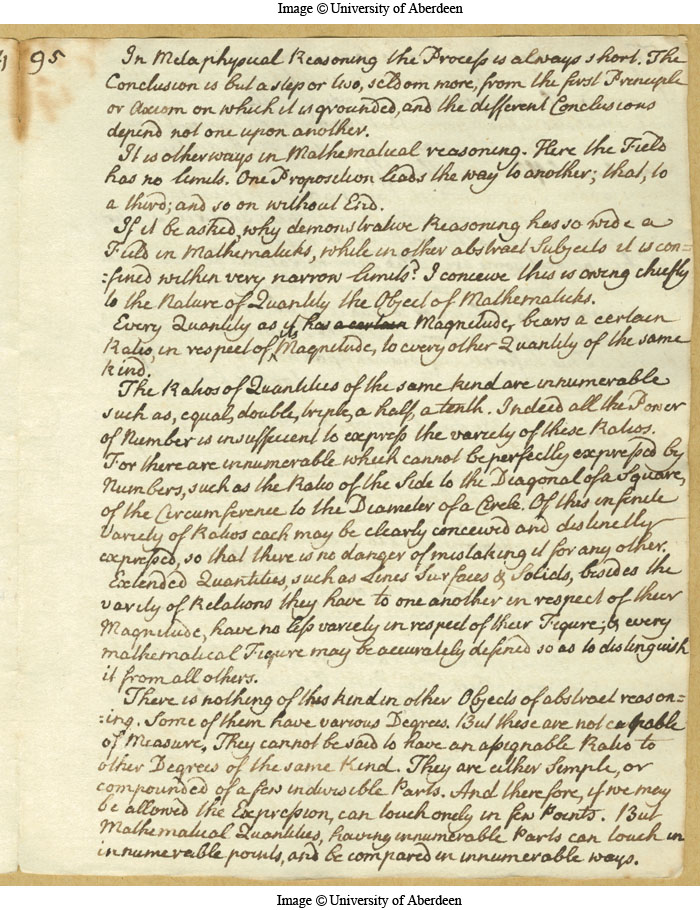 Image © University of Aberdeen
95
In Metaphysical Reasoning the Process is always short. The
Conclusion is but a step or two, seldom more, from the first Principle
or Axiom on which it is grounded, and the different Conclusions
depend not one upon another.
It is otherways in Mathematical reasoning. Here the Field
has no limits. One Proposition leads the way to another; that, to
a third; and so on without End.
If it be asked, why demonstrative Reasoning has so wide a
Field in Mathematicks, while in other abstract Subjects it is con=
=fined within very narrow limits? I conceive this is owing chiefly
to the Nature of Quantity the Object of Mathematicks.
Every Quantity as it has a certain Magnitude, bears a certain
Ratio, in respect of Magnitude, to every other Quantity of the same
kind.
The Ratios of Quantities of the same kind are innumerable
such as, equal, double, triple, a half, a tenth. Indeed all the Power
of Number is insufficient to express the variety of these Ratios.
For there are innumerable which cannot be perfectly expressed by
Numbers, such as the Ratio of the Side to the Diagonal of a Square,
of the Circumference to the Diameter of a Circle. Of this infinite
Variety of Ratios each may be clearly conceived and distinctly
expressed, so that there is no danger of mistaking it for any other.
Extended Quantities, such as Lines Surfaces & Solids, besides the
varity of Relations they have to one another in respect of their
Magnitude, have no less variety in respect of their Figure; & every
mathematical Figure may be accurately defined so as to distinguish
it from all others.
There is nothing of this kind in other Objects of abstract reason=
=ing. Some of them have various Degrees. But these are not capable
of Measure, They cannot be said to have an assignable Ratio to
other Degrees of the same Kind. They are either Simple, or
compounded of a few indivisible Parts. And therefore, if we may
be allowed the Expression, can touch onely in few Points. But
Mathematical Quantities, having innumerable Parts can touch in
innumerable points, and be compared in innumerable ways.
Image © University of Aberdeen